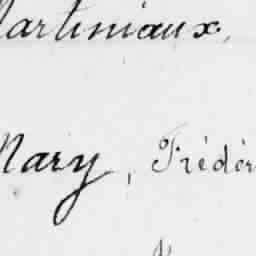 Martiniaux,
Mary, Frédér